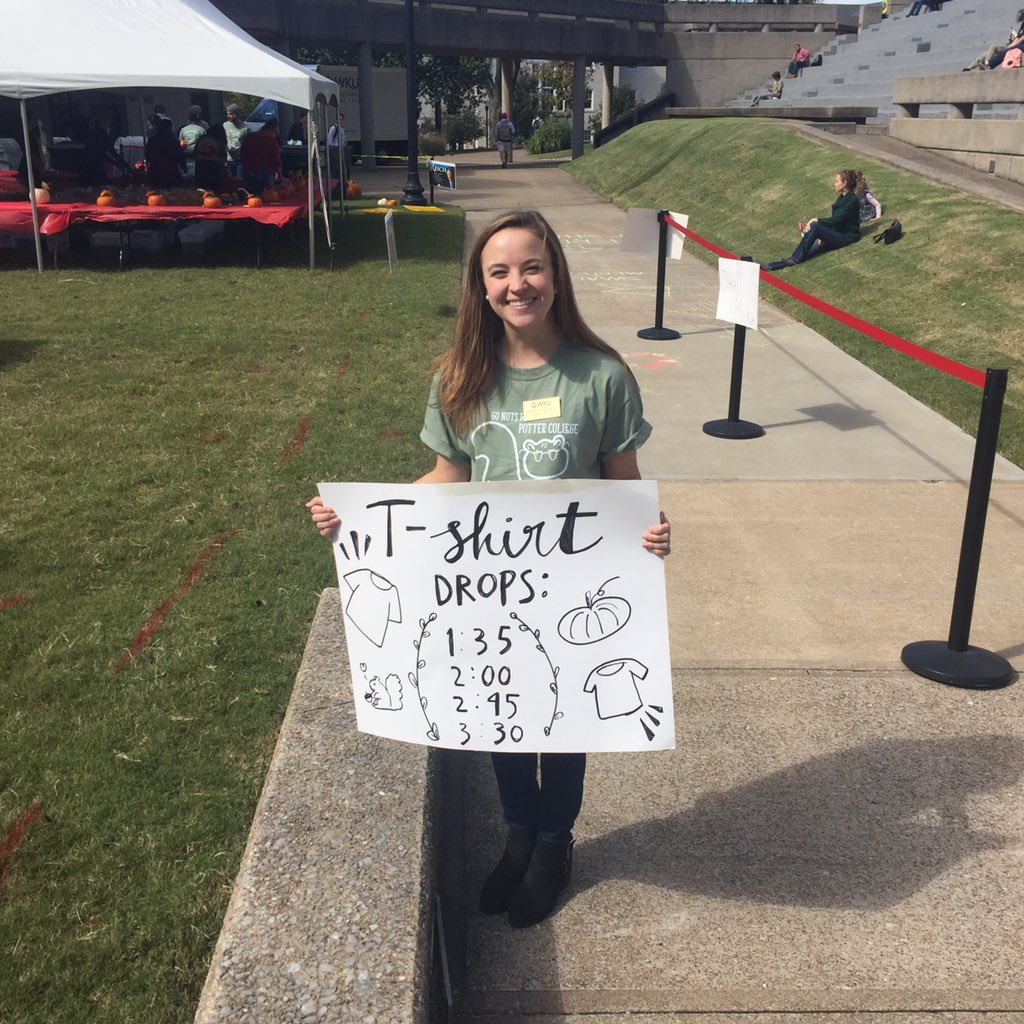 WKU
GO NUTS
POTTER COLLEGE
WKU
T-shirt
DROPS:
1:35
2:00
2:45
3:30